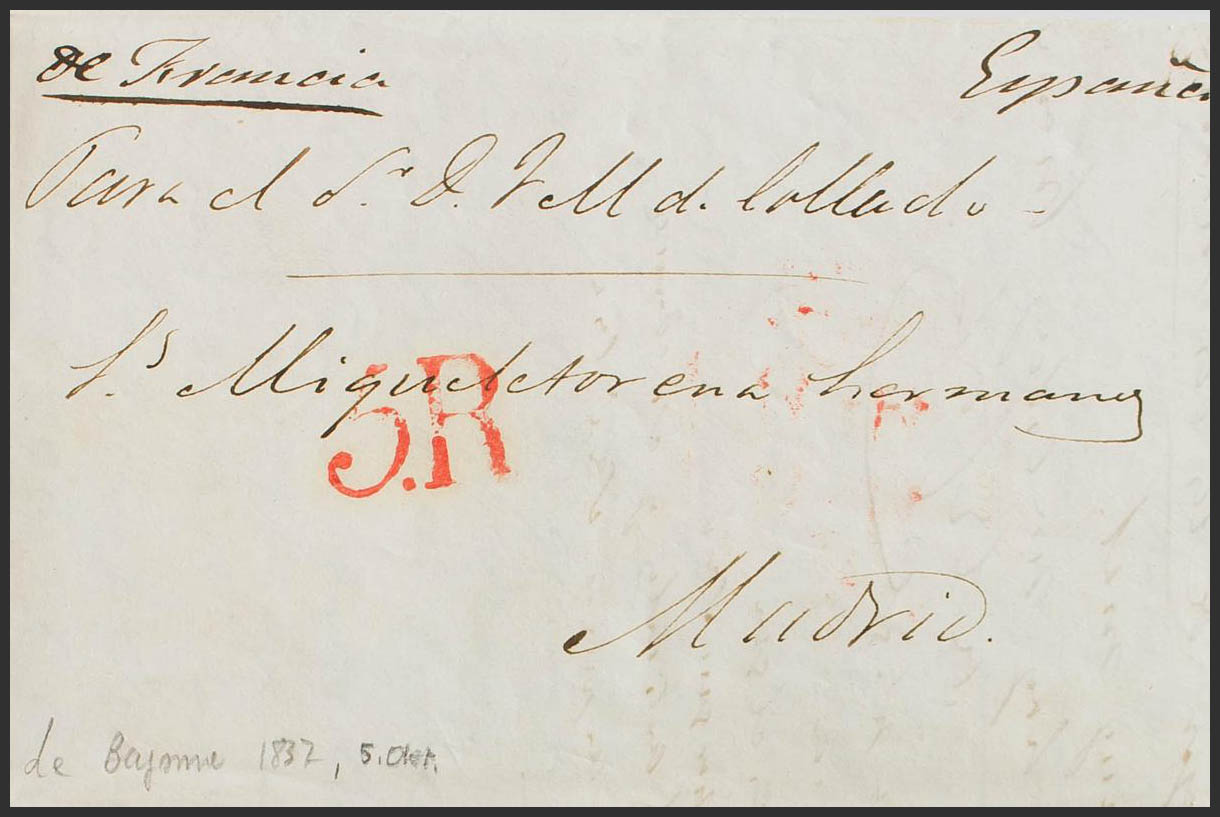 de Francia
España
Para el Sr. D. J M d. Collado
Ss. Migueletorena hermanos
5.R
Madrid.
de Bayonne 1837, 5. Okt.